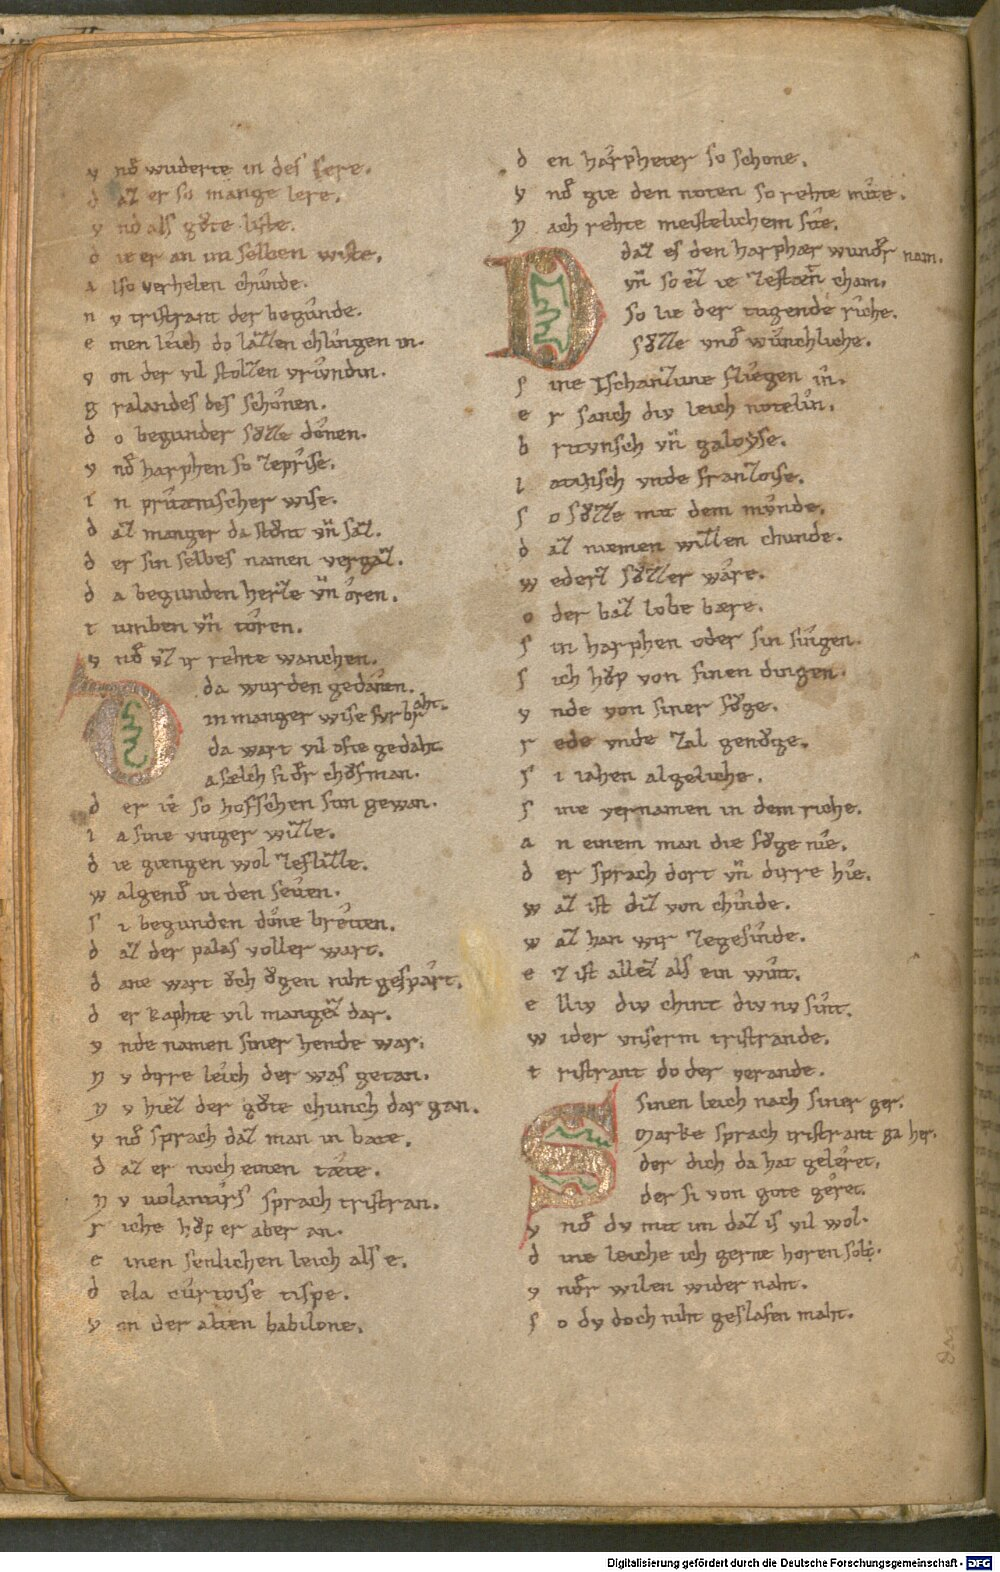 v nd wuderte in des sere.
d az er so mange lere.
v nd als gůte liste.
d ie er an im selben wiste.
a lso verhelen chunde.
n v tristrant der begunde.
e inen leich do lazzen chlingen in.
v on der vil stolzen vriundin.
g ralandes des schonen.
d o begunder sůzze donen.
v nd harphen so ze prise.
i n prituenischer wise.
d az manger da stůnt vn saz.
d er sin selbes namen vergaz.
d a begunden herze vn oren.
t umben vn toren.
v nd vz ir rehte wanchen.
da wurden gedanen.
in manger wise fvrbraht.
da wart vil ofte gedaht.
a sælch si der chofman.
d er ie so hofschen sun gewan.
i a sine vinger wizze.
d ie giengen wol ze flizze.
w algend in den seiten.
s i begunden done breiten.
d az der palas voller wart.
d ane wart ǒch ǒgen niht gespart.
d er kaphte vil mangez dar.
v nde namen siner hende war.
N v dirre leich der was getan.
N v hiez der gůte chunch dar gan.
v nd sprach daz man in bate.
d az er noch einen tæte.
N v uolantiers sprach tristran.
r iche hůp er aber an.
e inen senlichen leich als e.
d ela curtoise tispe.
v on der alten babilone.
d en harpheter so schone.
v nd gie den noten so rehte mite.
N ach rehte meistelichem site.
D daz es den harphær wunder nam.
vn so ez ie ze staten cham.
so lie der tugende riche.
sůzze vnd wunchliche.
s ine Tschanzune fliegen in.
e r sanch div leich notelin.
b ritvnsch vn galoyse.
l atinsch vnde franzoise.
s o sůzze mit dem mvnde.
d az niemen wizzen chunde.
w ederz sůzzer wære.
o der baz lobe bære.
s in harphen oder sin singen.
s ich hůp von sinen dingen.
v nde von siner fůge.
r ede vnde zal genůge.
s i iahen algeliche.
s ine vernamen in dem riche.
a n einem man die fůge nie.
d er sprach dort vn dirre hie.
w az ist diz von chinde.
w az han wir ze gesinde.
e z ist allez als ein wint.
e lliv div chint div nv sint.
w ider vnserm tristrande.
t ristrant do der verande.
S sinen leich nach siner ger.
Marke sprach tristrant ga her.
der dich da hat geleret.
der si von gote geret.
v nd dv mit im daz is vil wol.
d ine leiche ich gerne horen sol.
v nder wilen wider naht.
s o dv doch niht geslafen maht.
Digitalisierung gefördert durch die Deutsche Forschungsgemeinschaft - DFG